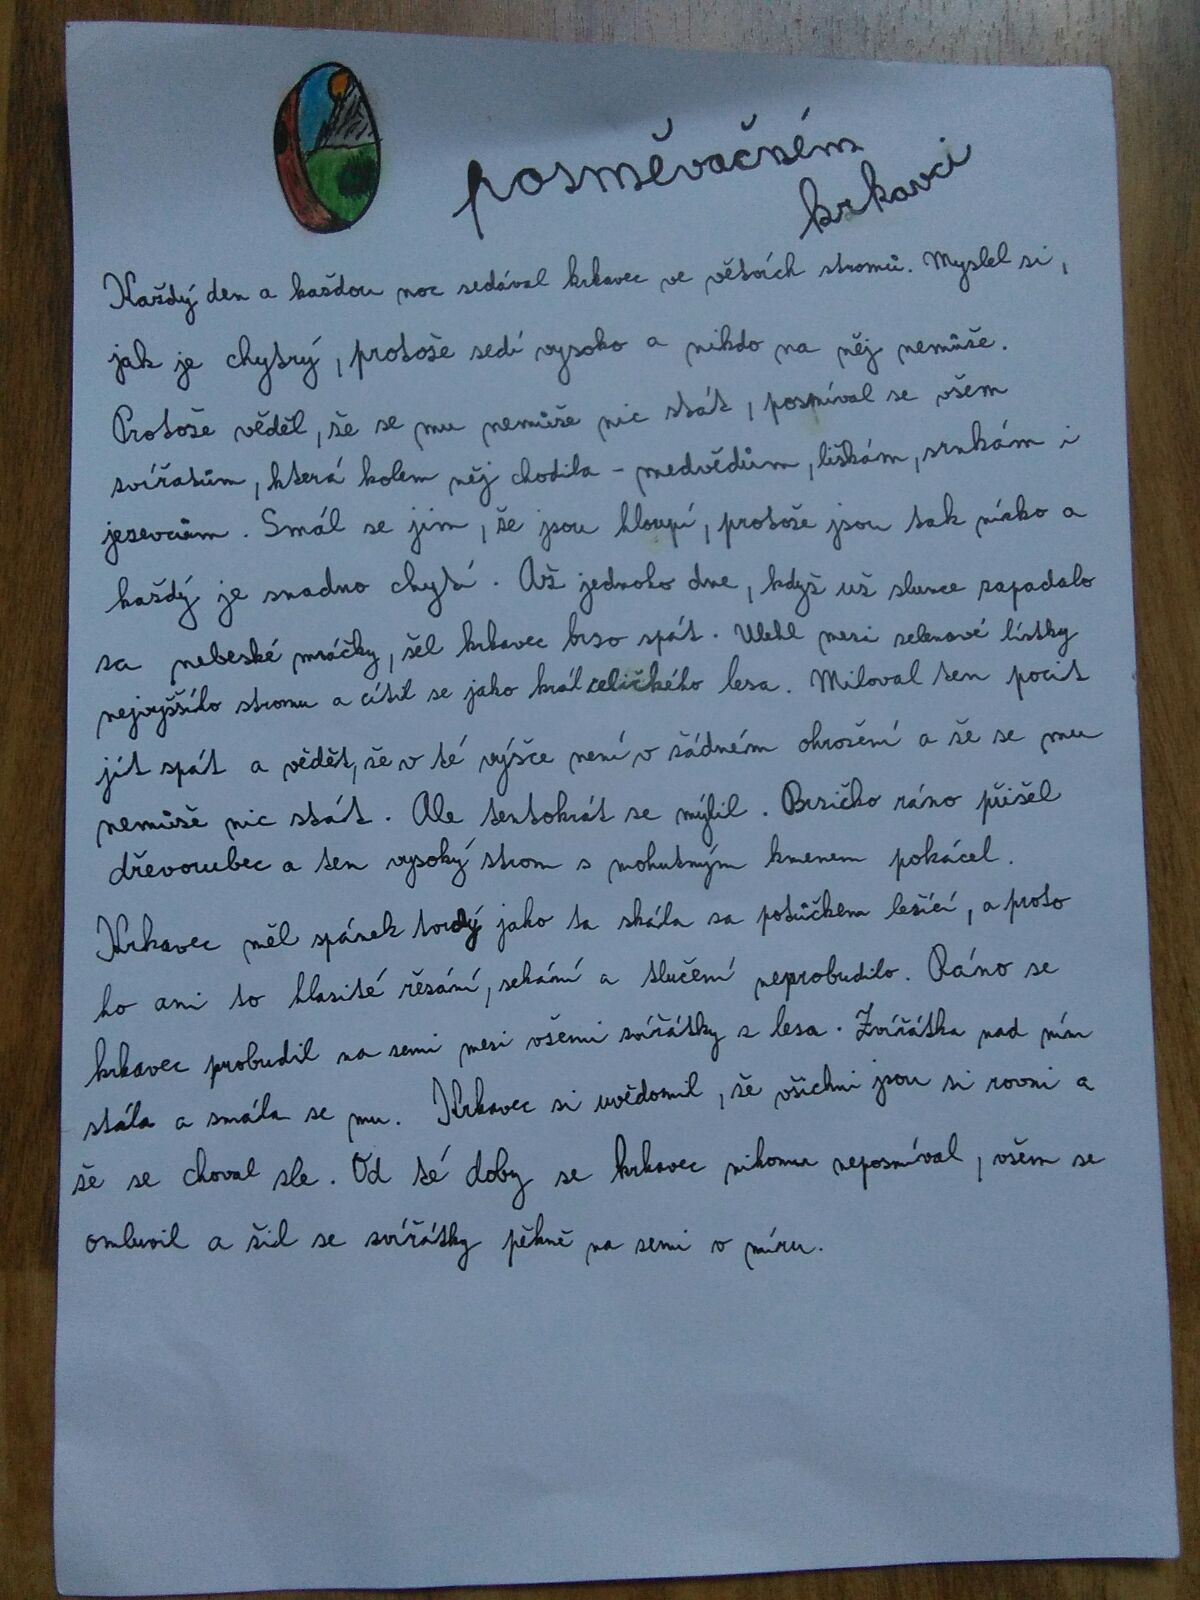 O posměvačném
krkavci
Každý den a každou noc sedával krkavec ve větvích stromů. Myslel si,
jak je chytrý, protože sedí vysoko a nikdo na něj nemůže.
Protože věděl, že se mu nemůže nic stát, posmíval se všem
zvířatům, která kolem něj chodila - medvědům, liškám, srnkám i
jezevcům. Smál se jim, že jsou hloupí, protože jsou tak nízko a
každý je snadno chytí. Až jednoho dne, když už slunce zapadalo
za nebeské mráčky, šel krkavec brzo spát. Ulehl mezi zelenavé lístky
nejvyššího stromu a cítil se jako král celičkého lesa. Miloval ten pocit
jít spát a vědět, že v té výšce není v žádném ohrožení a že se mu
nemůže nic stát. Ale tentokrát se mýlil. Brzičko ráno přišel
dřevorubec a ten vysoký strom s mohutným kmenem pokácel.
Krkavec měl spánek tvrdý jako ta skála za potůčkem ležící, a proto
ho ani to hlasité řezání, sekání a tlučení neprobudilo. Ráno se
krkavec probudil na zemi mezi všemi zvířátky z lesa. Zvířátka nad ním
stála a smála se mu. Krkavec si uvědomil, že všichni jsou si rovni a
že se choval zle. Od té doby se krkavec nikomu neposmíval, všem se
omluvil a žil se zvířátky pěkně na zemi v míru.